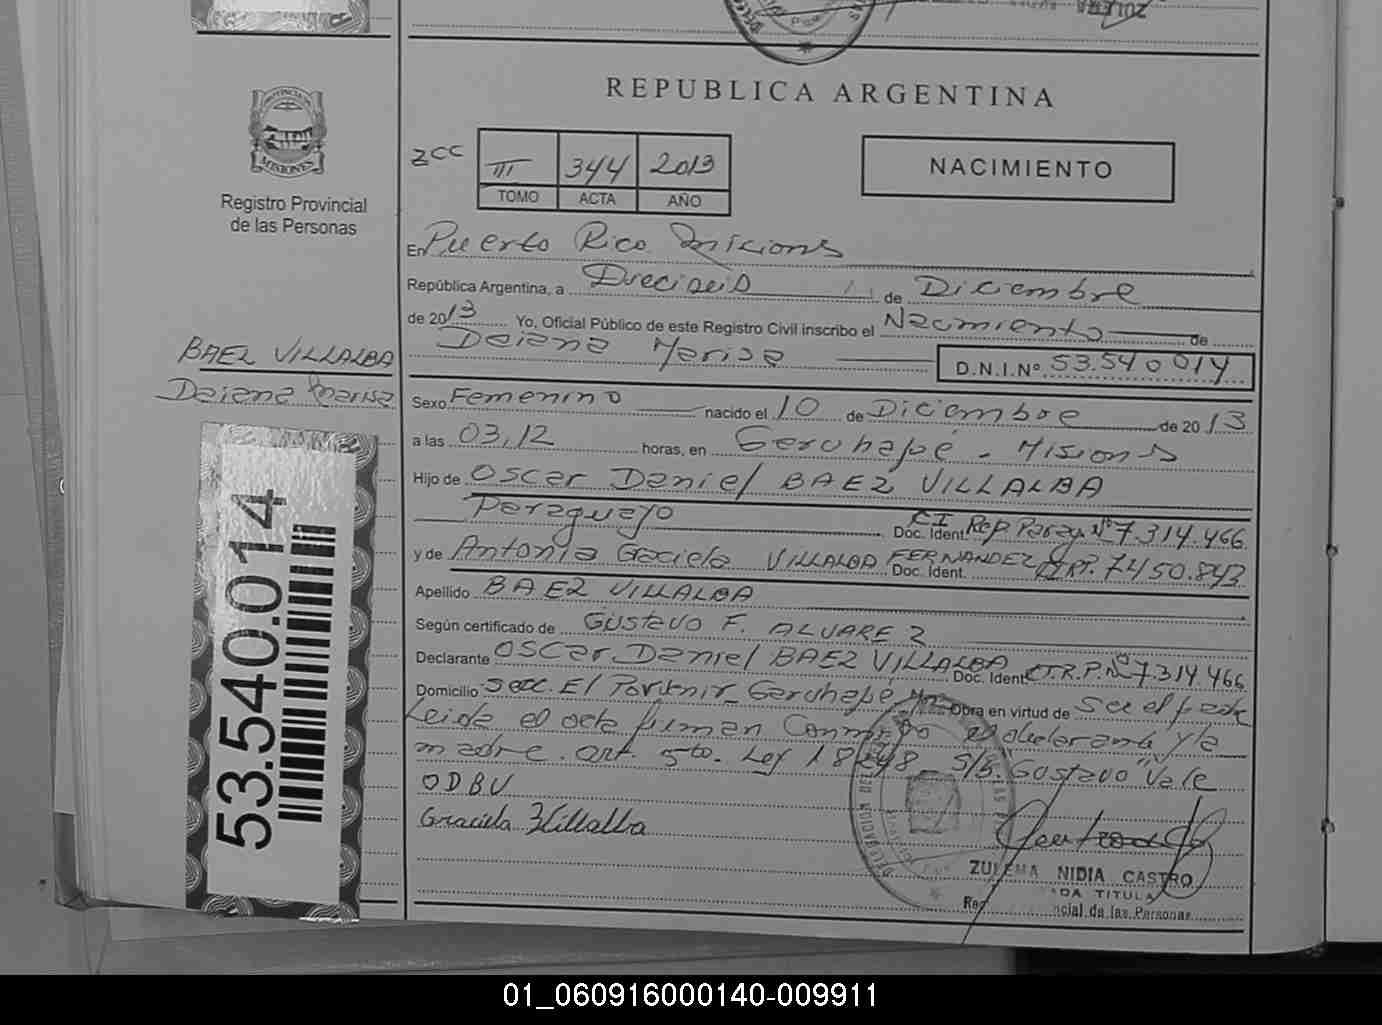 REPUBLICA ARGENTINA
PROVINCIA
MISIONES
Registro Provincial
de las Personas
ZCC III 344 2013
TOMO ACTA AÑO
NACIMIENTO
En Puerto Rico Misiones
República Argentina, a Dieciseis de Diciembre
de 2013 Yo, Oficial Público de este Registro Civil inscribo el Nacimiento de
Daiana Marisa D.N.I.Nº 53.540014
BAEZ VILLALBA
Daiana Marisa
Sexo Femenino nacido el 10 de Diciembre de 2013
a las 03,12 horas, en Garuhapé - Misiones
Hijo de Oscar Daniel BAEZ VILLALBA
Paraguayo Doc. Ident. CI Rep. Paray. Nº 7.314.466
y de Antonia Graciela VILLALBA FERNANDEZ Doc. Ident. 7450.843
Apellido BAEZ VILLALBA
Según certificado de Gustavo F. ALVAREZ
Declarante Oscar Daniel BAEZ VILLALBA Doc. Ident. C.I.R.P. Nº 7.314.466
Domicilio Secc. El Porvenir Garuhapé Mnes Obra en virtud de Ser el padre
Leida el acta firman Conmigo el declarante y la
madre. Art. 5to. Ley 18248 - S/B. Gustavo "Vale
ODBV
Graciela Villalba
ZULEMA NIDIA CASTRO
DELEGACION DEL
53.540.014
01_060916000140-009911